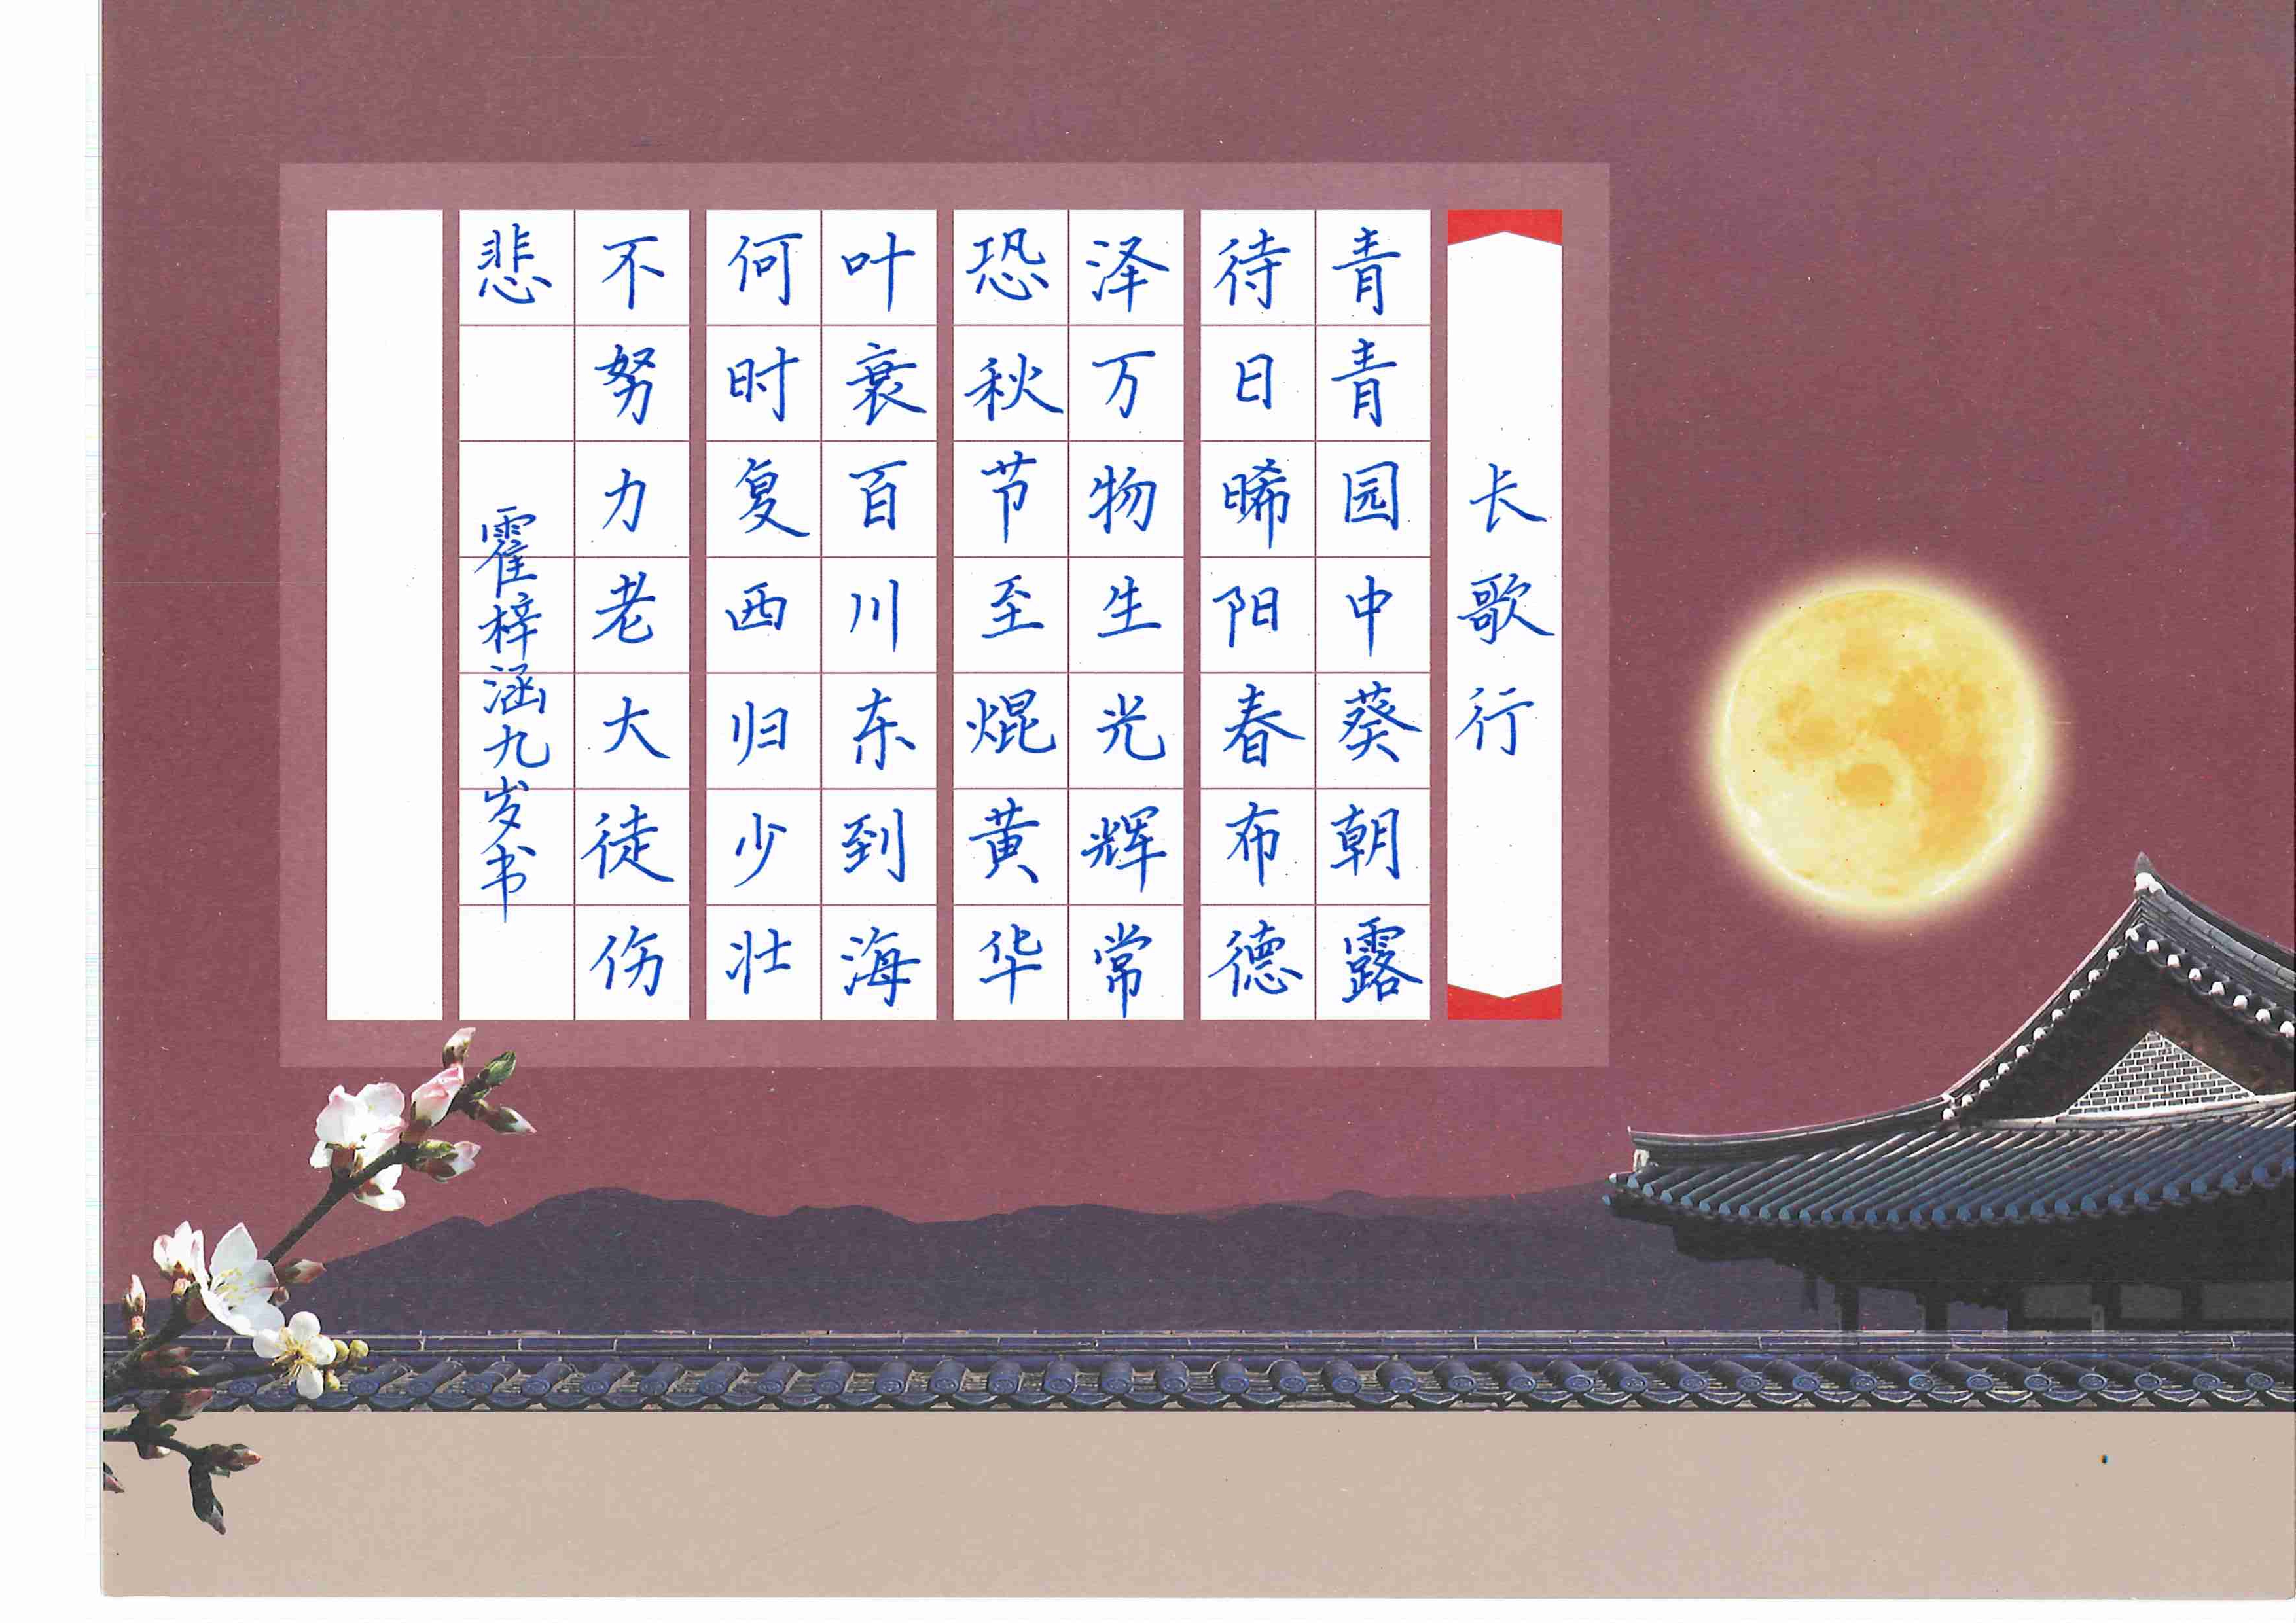 长歌行
青青园中葵朝露
待日晞阳春布德
泽万物生光辉常
恐秋节至焜黄华
叶衰百川东到海
何时复西归少壮
不努力老大徒伤
悲
霍梓涵九岁书